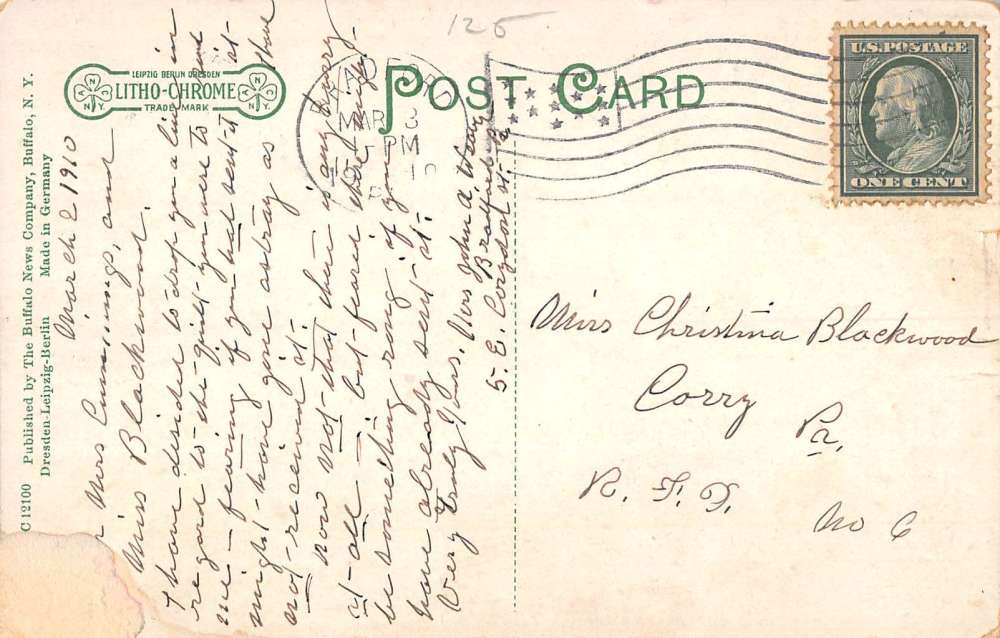 C 12100 Published by The Buffalo News Company, Buffalo, N. Y.
Dresden-Leipzig-Berlin Made in Germany
LEIPZIG BERLIN DRESDEN
LITHO-CHROME
TRADE MARK
POST CARD
125
MAR
5 PM
U.S. POSTAGE
ONE CENT
March 2 1910
Mrs Cummings, and
Miss Blackwood.
I have decided to drop you a line in
regard to the quilt you were to send
me - fearing if you had sent it it
might have gone astray as I have
not received it.
now not that there is any hurry
at all - but feared there might
be something rong if you
have already sent it.
Very Truly Yours, Mrs John A.
Bradford
5. E. St.
Miss Christina Blackwood
Corry
Pa.
R. F. D. No 6